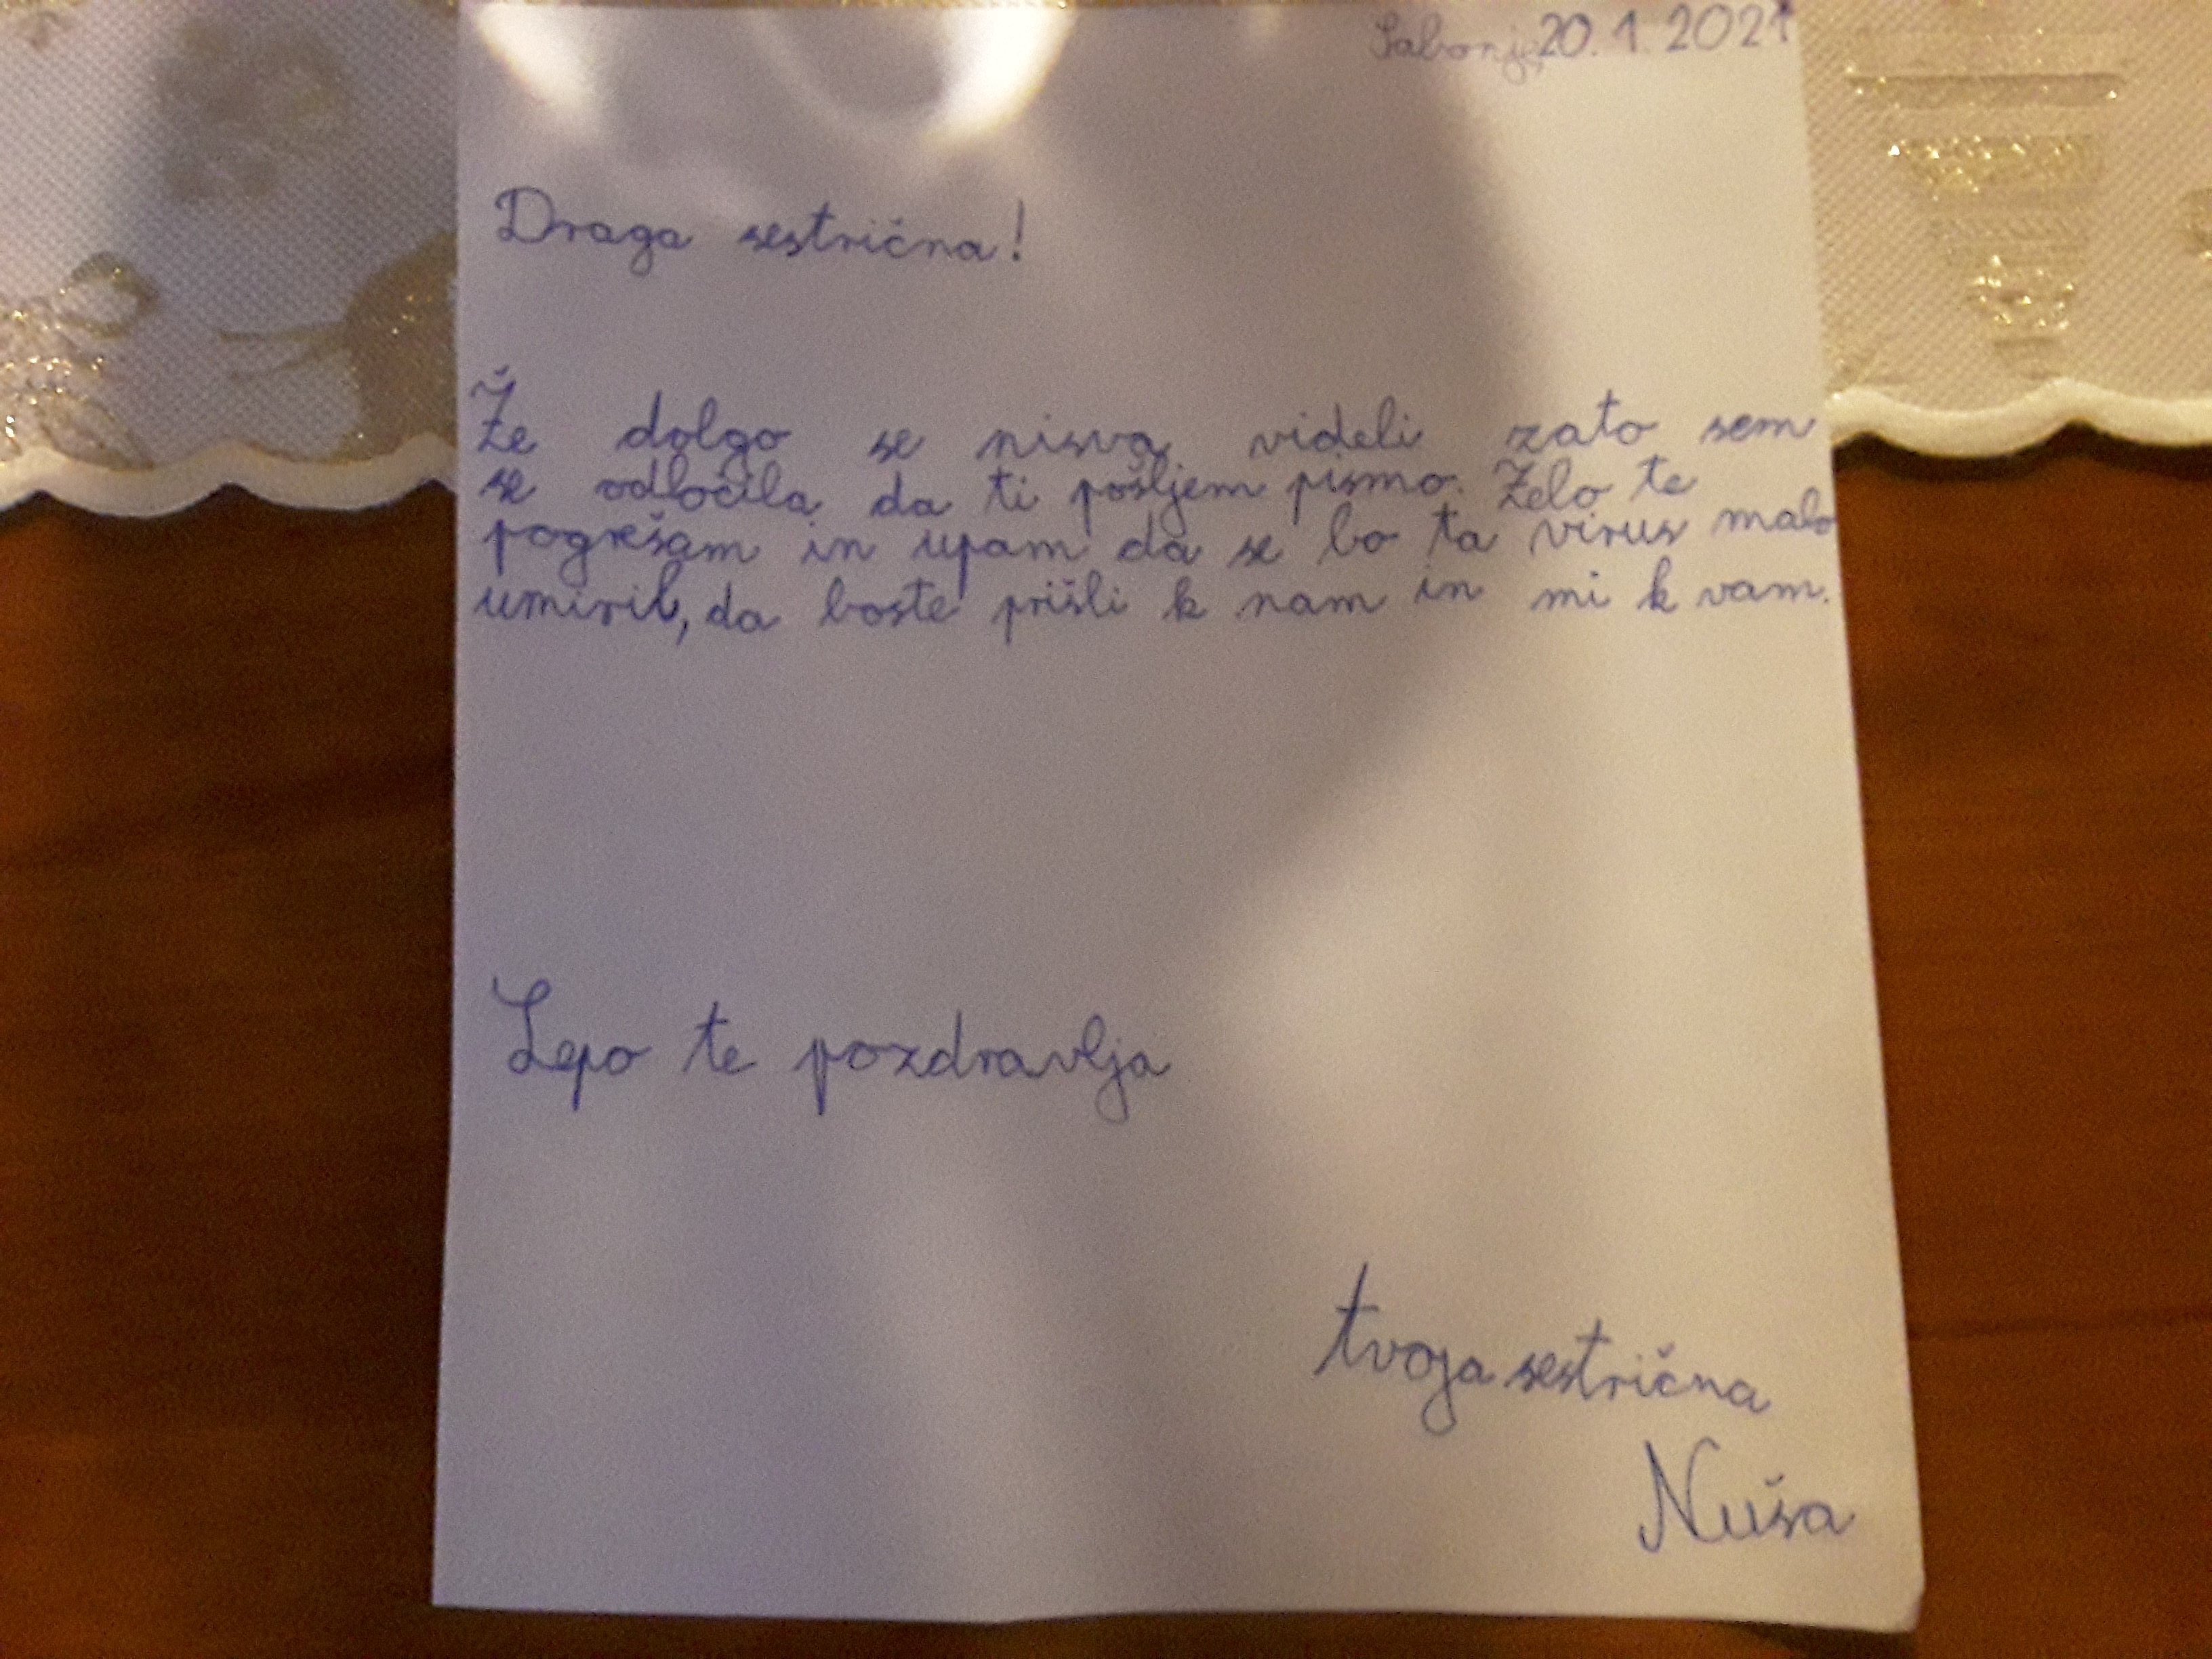 Sabonje, 20. 1. 2021
Draga sestrična!
Že dolgo se nisva videli zato sem
se odločila da ti pošljem pismo. Želo te
pogrešam in upam da se bo ta virus malo
umiril, da boste prišli k nam in mi k vam.
Lepo te pozdravlja
tvoja sestrična
Nuša